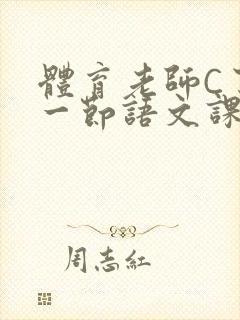 體育老師C
一節語文課
周志紅